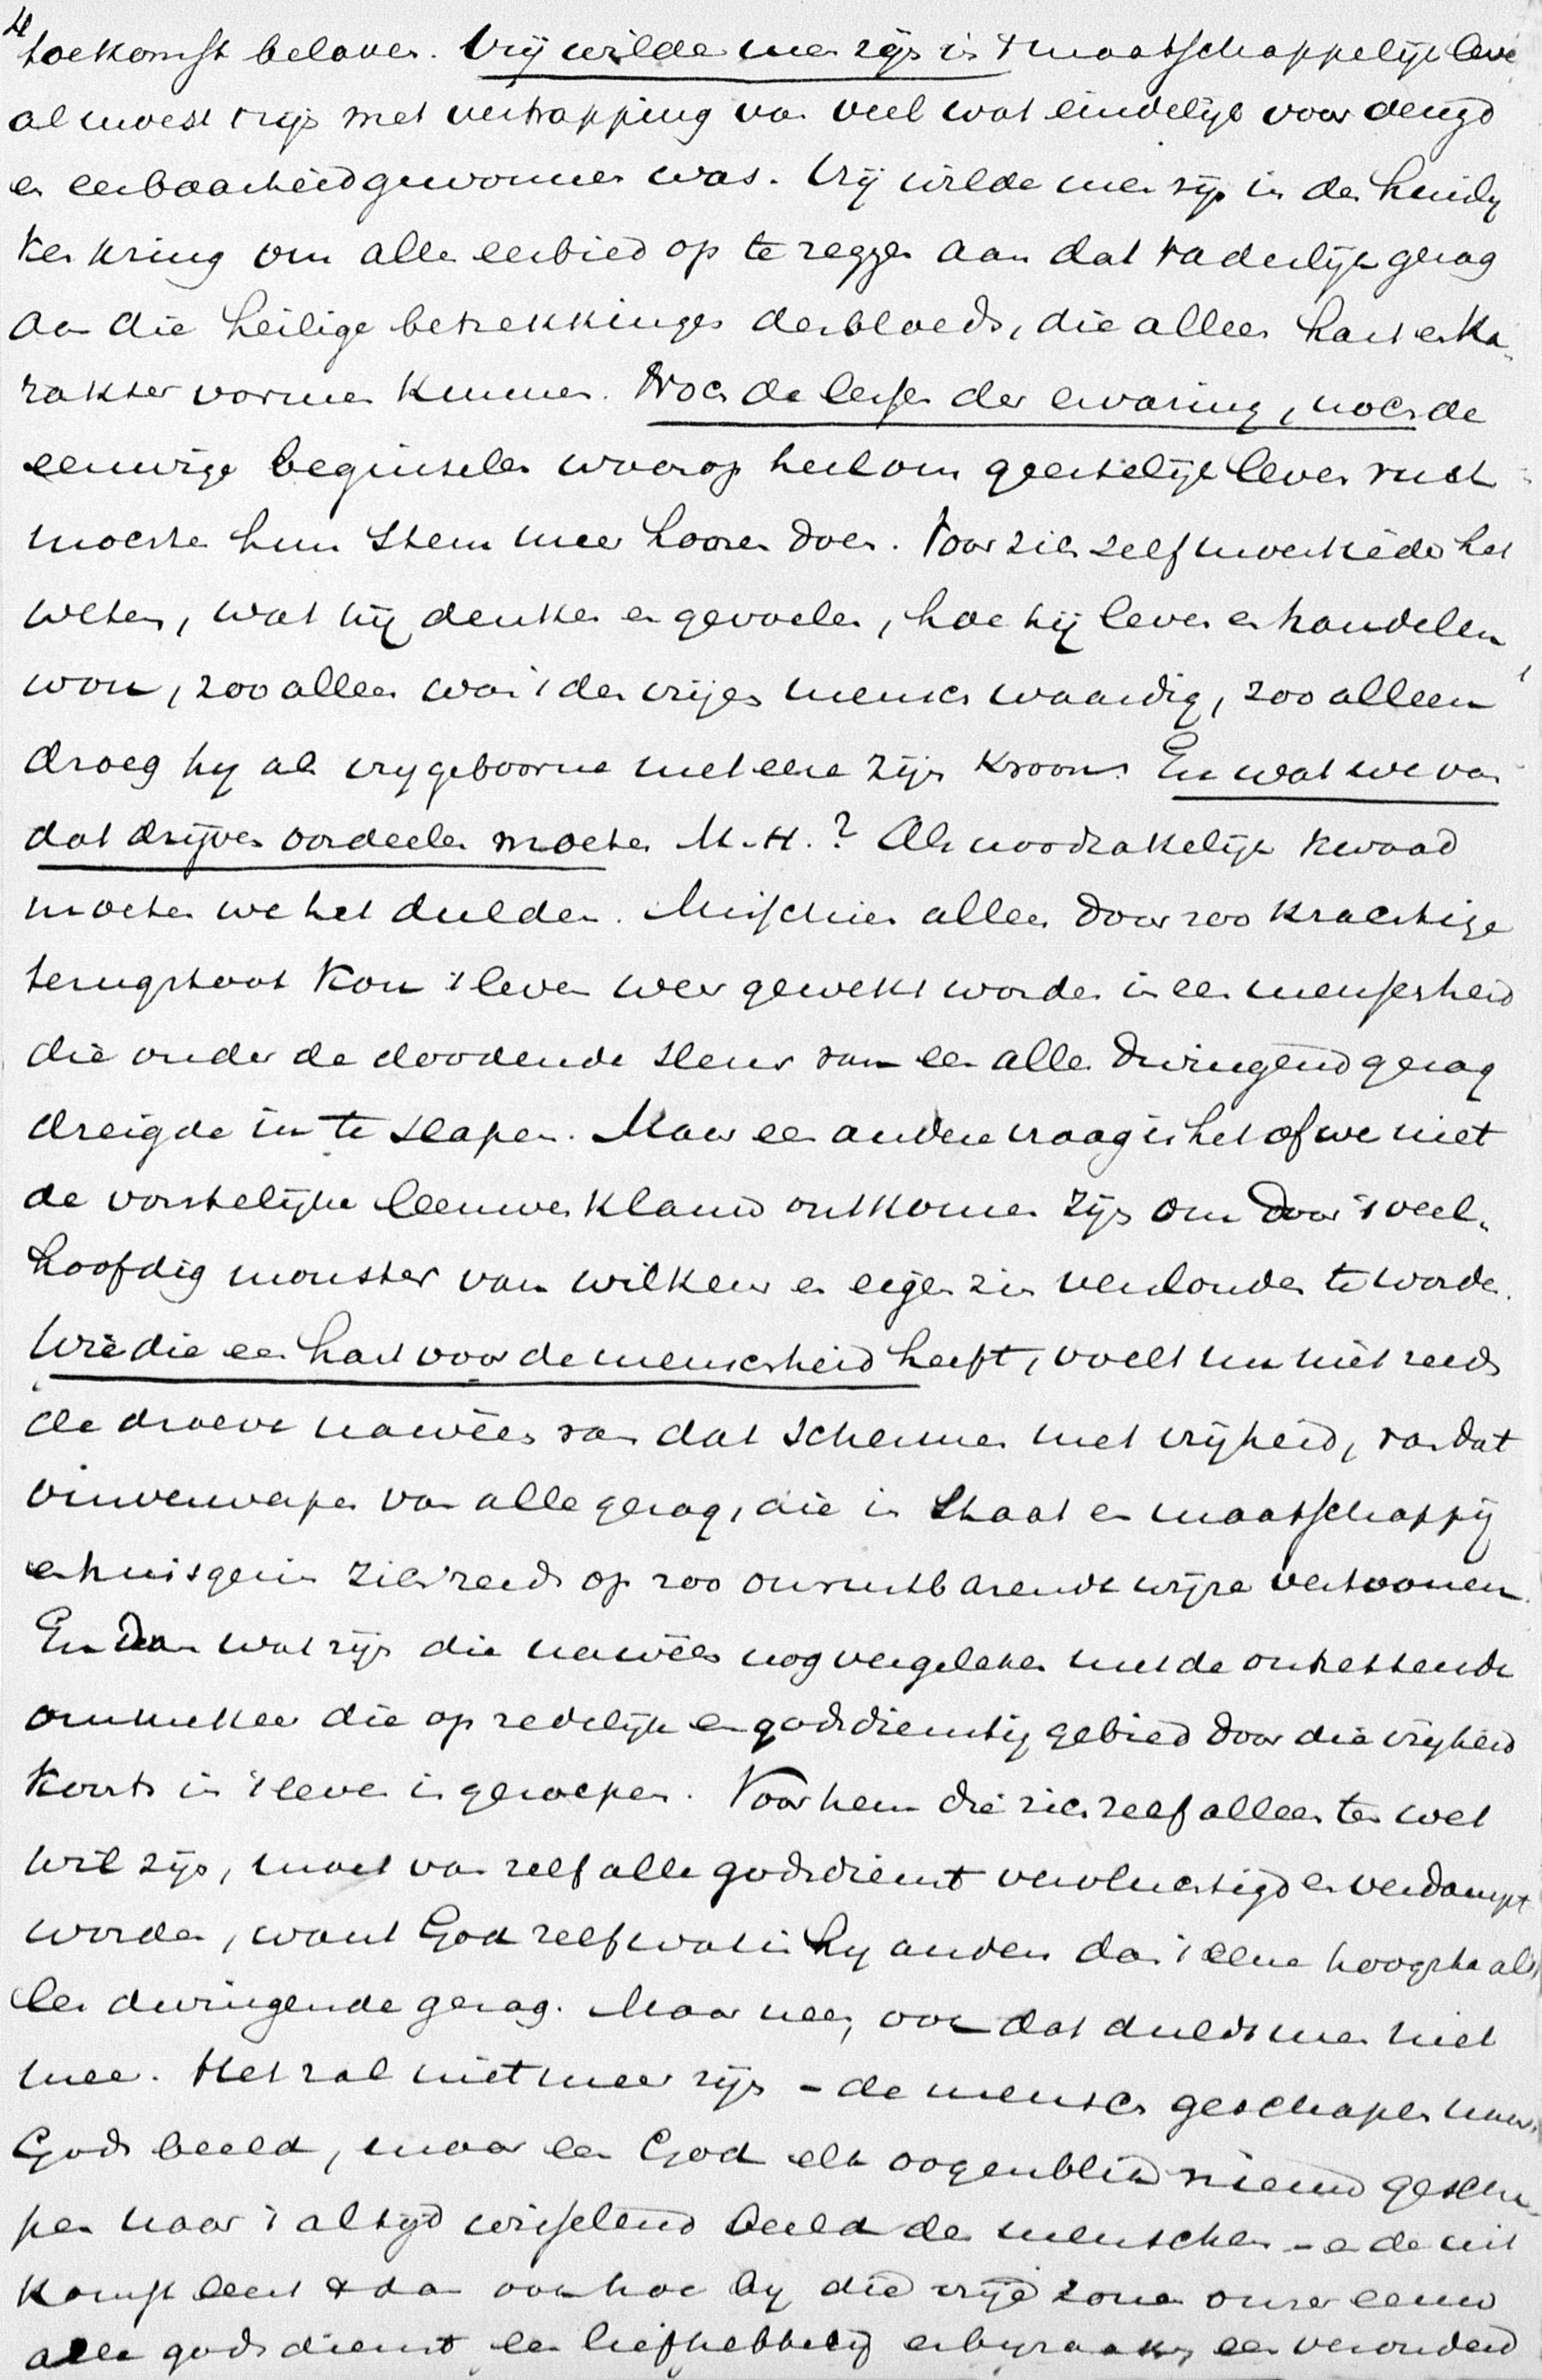 toekomst beloven. Vrij wilde men zijn in 't maatschappelijk leve
al moest 't zijn met vertrapping van veel wat eindelijk voor deugd
en eerbaarheid gewonnen was. Vrij wilde men zijn in den huisly
ken kring om allen eerbied op te zeggen aan dat vaderlijk gezag
aan die heilige betrekkingen des bloeds, die alleen hart en ka-
rakter vormen kunnen. Noch de lessen der ervaring, noch de
eeuwige beginselen waarop heel ons geestelijk leven rust
moesten hun stem meer hooren doen. Voor zich zelf moest ieder het
weten, wat hij denken en gevoelen, hoe hij leven en handelen
wou, zoo alleen was 't den vrijen mensch waardig, zoo alleen
droeg hy als vrygeboorne met eere zijn kroon. En wat we van
dat drijven oordeelen moeten M.H.? Als noodzakelijk kwaad
moeten we het dulden. Misschien alleen door zoo krachtige
terugstoot kon 't leven weer gewekt worden in een menscheid
die onder de doodende sleur van een alles dwingend gezag
dreigde in te slapen. Maar een andere vraag is het of we niet
de vorstelijke leeuwenklauw ontkomen zijn om door 't veel-
hoofdig monster van wilkeur en eigenzin verslonden te worden.
Wie die een hart voor de menscheid heeft, voelt nu niet reeds
de droeve naweën van dat schermen met vrijheid, van dat
omverwerpen van alle gezag, die in Staat en maatschappij
en huisgezin zich reeds op zoo onrustbarende wijze vertoonen.
En dan wat zijn die naweën nog vergeleken met de ontzettende
ommekeer die op zedelijk en godsdienstig gebied door die vrijheid
koorts in 't leven is geroepen. Voor hem die zich zelf alleen ten wet
wil zijn, moet van zelf alle godsdienst vervluchtigd en verdampt
worden, want God zelf wat is hy anders dan 't eene hoogste alles
en dwingende gezag. Maar neen, ook dat duldt men niet
meer. Het zal niet meer zijn - de mensch geschapen naar
Gods beeld, maar een God elk oogenblik nieuw gescha-
pen naar 't altijd wisselend beeld der menschen - en de uit
komst leert dan ook hoe by die vrije zonen onzer eeuw
alle godsdienst een liefhebbery en byzaak, een verouderd